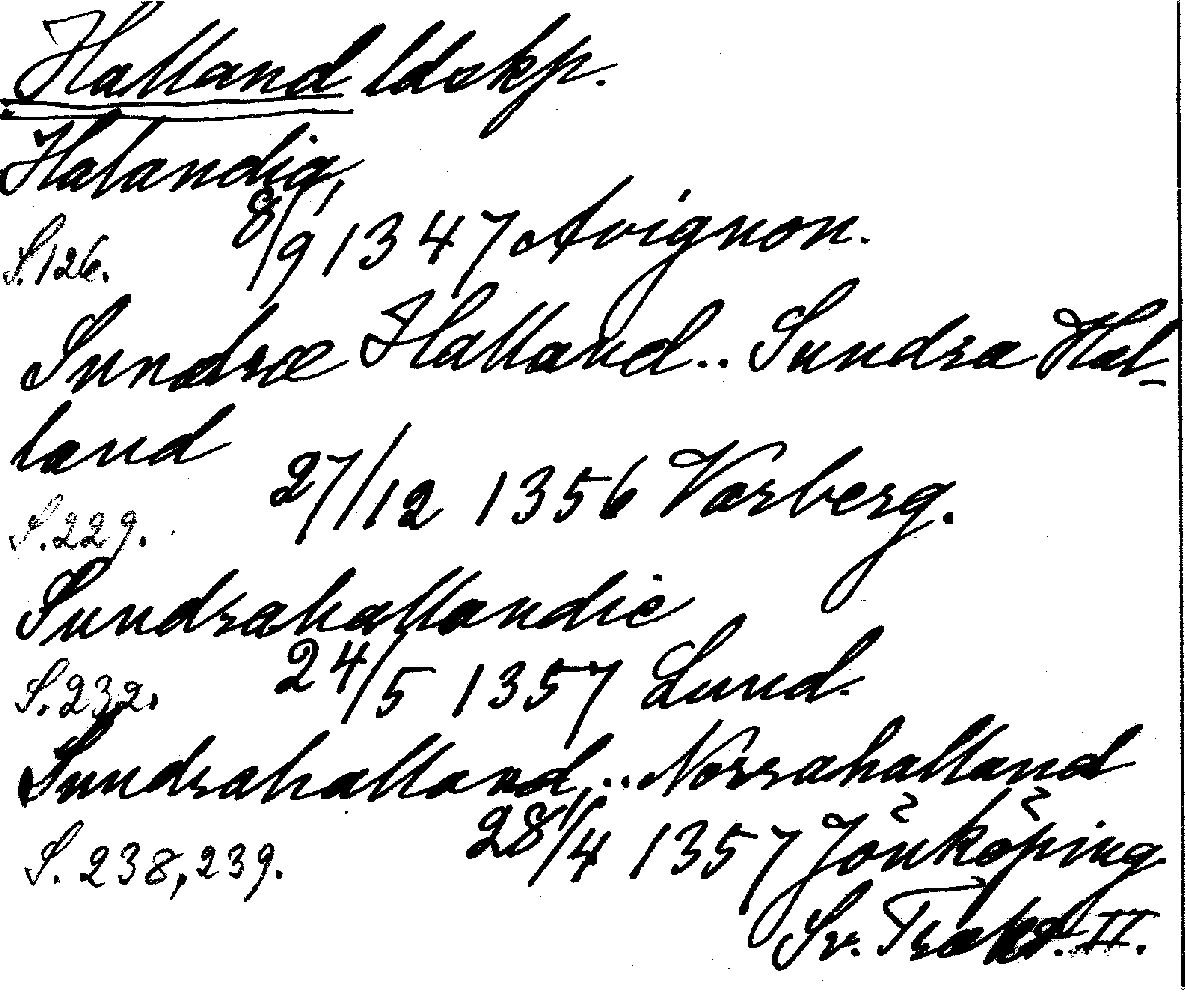 Halland ldskp.
Halandia
S.126. 8/9 1347 Avignon.
Sundræ Halland.. Sundra Hal-
land
S.229. 27/12 1356 Varberg.
Sundrahallandie
S.232. 24/5 1357 Lund.
Sundrahalland.. Norrahalland
S. 238, 239. 28/4 1357 Jönköping
Sv. Trakt. II.